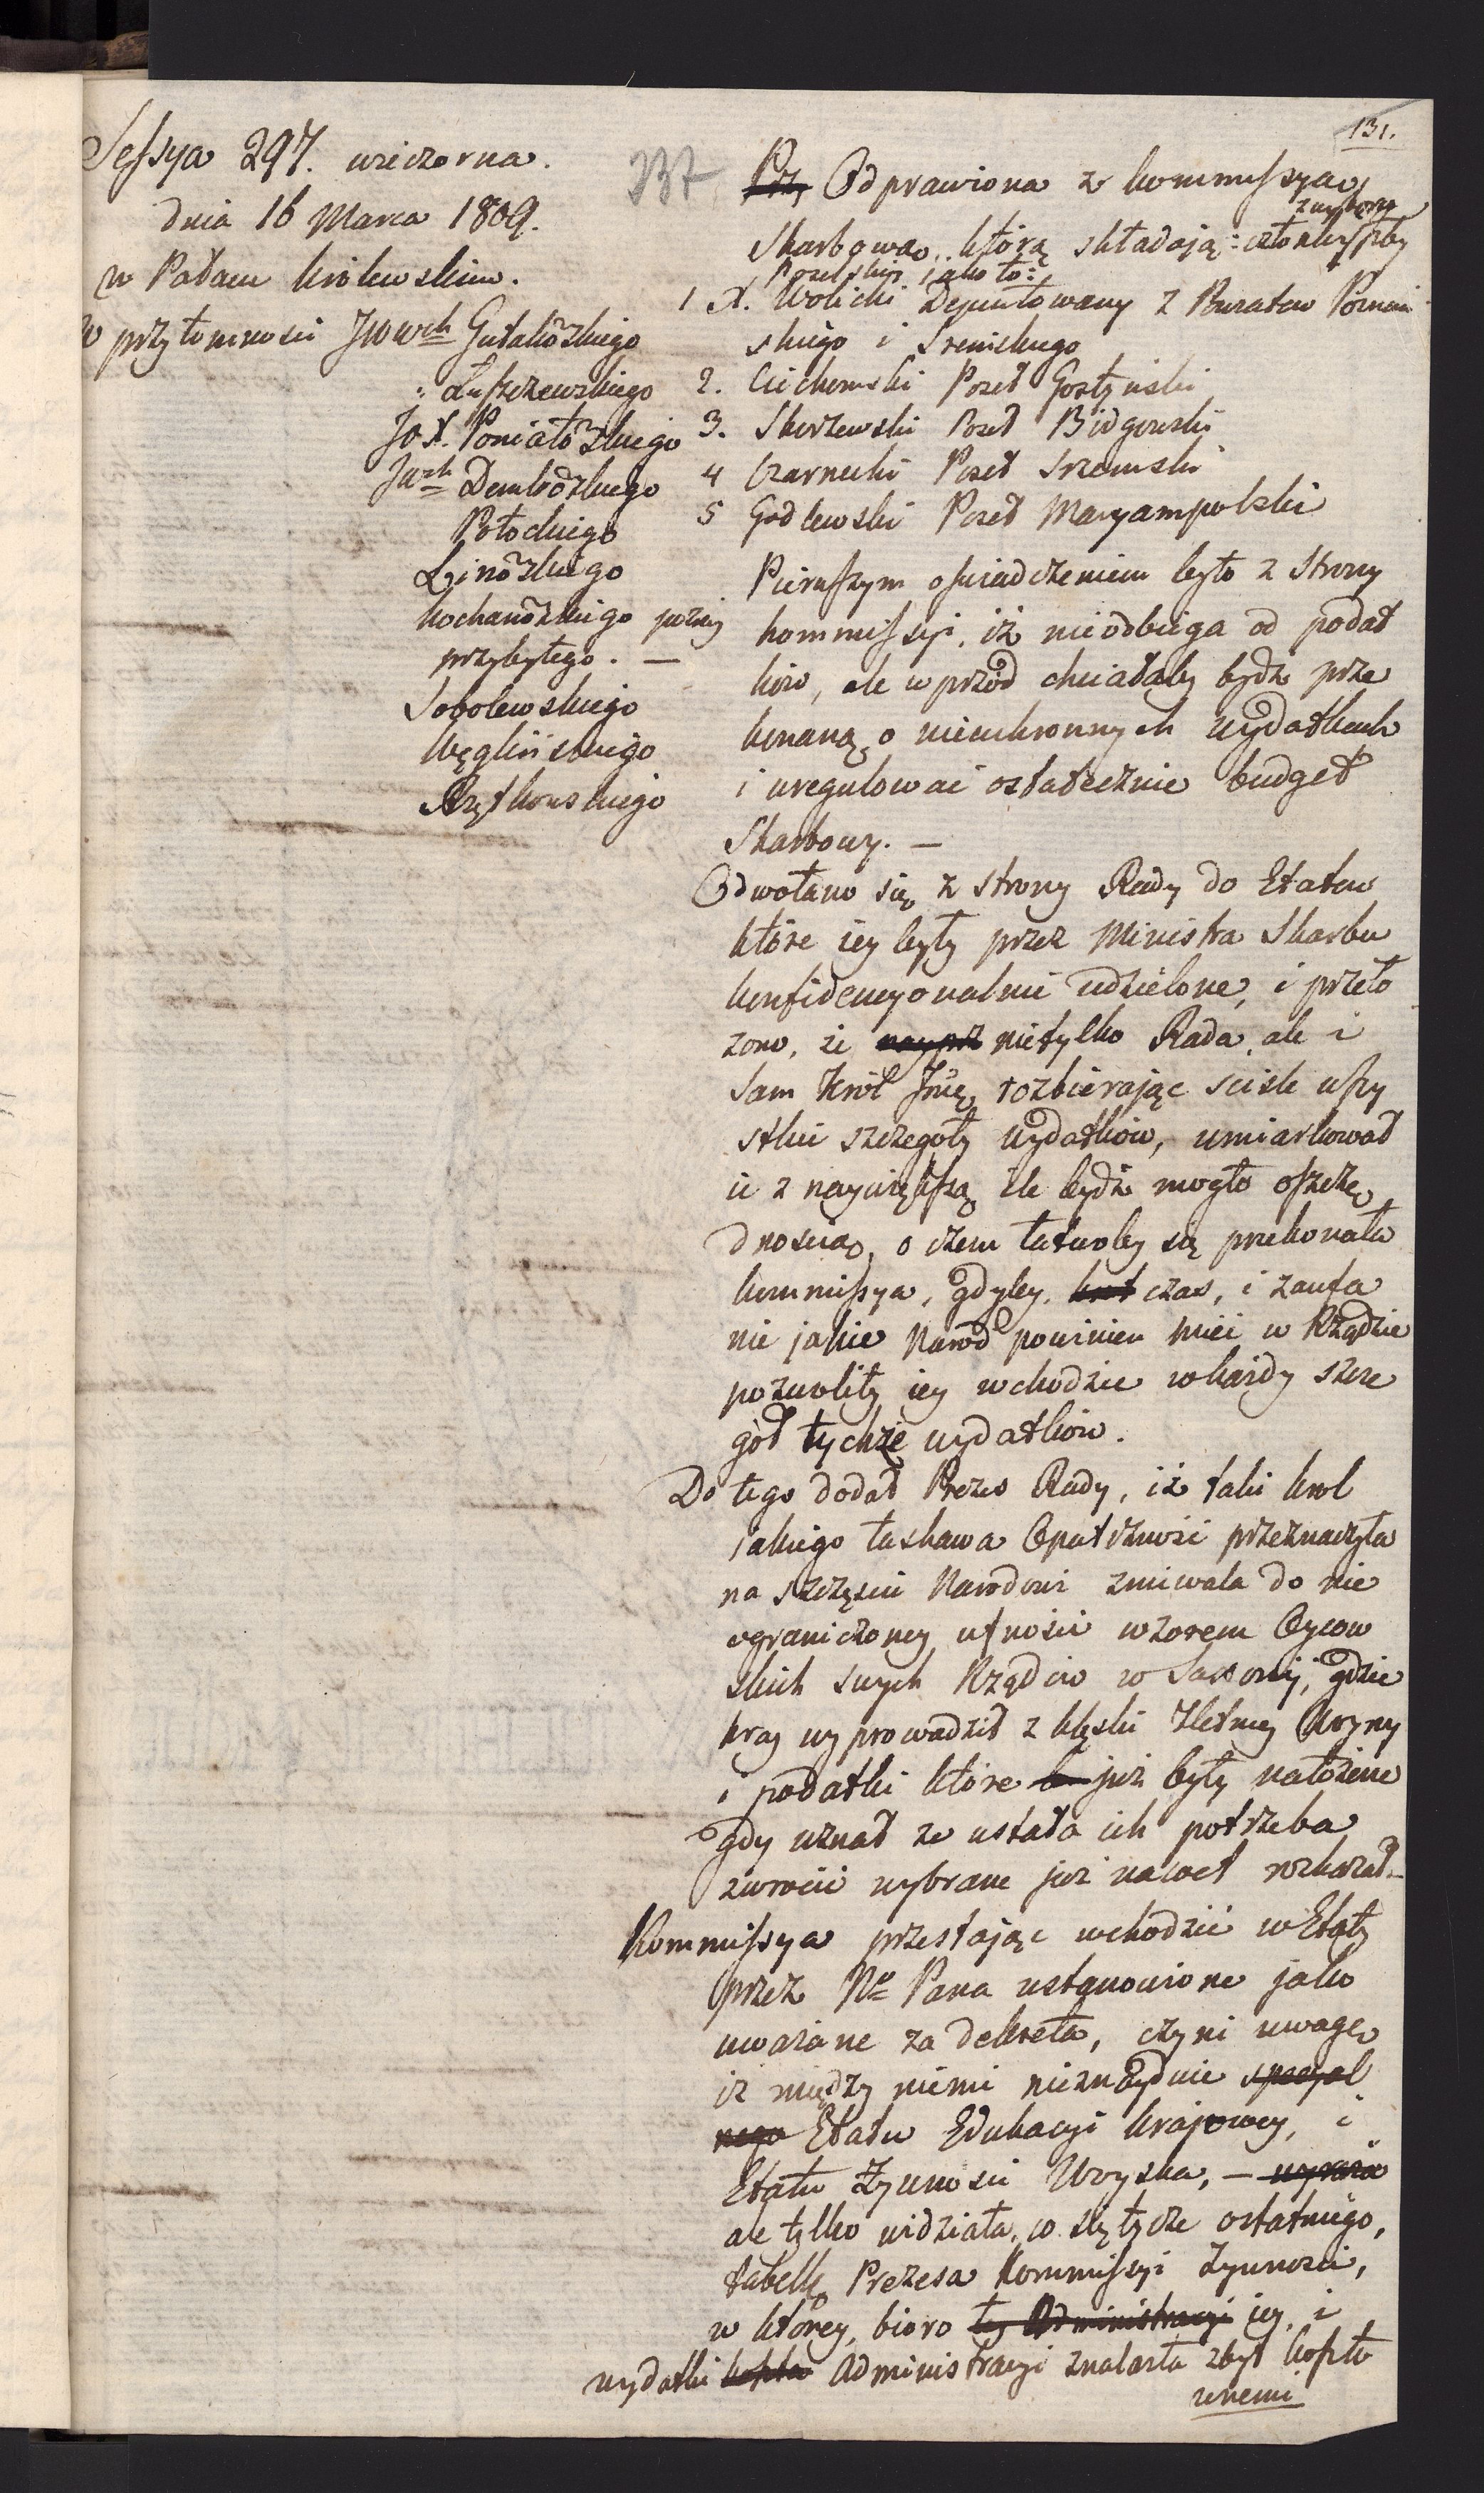 131.
237
Sessya 297. wieczorna.
dnia 16 Marca 1809.
w Pałacu Królewskim.
w przytomności JWWch Gutakowskiego
Łuszczewskiego
JOX. Poniatowskiego
JWch Dembowskiego
Potockiego
Linowskiego
Kochanowskiego później
przybyłego. —
Sobolewskiego
Węgleńskiego
Rzętkowskiego
Prz Odprawiona z kommissyą
Skarbową, którą składają: członki z wyboru Izby
Poselskiey jako to:
1 X. Wolicki Deputowany z Powiatów Poznań
skiego i Sremskiego
2. Ciechomski Poseł Gostyński
3. Skorzewski Poseł Bidgoski
4 Czarnecki Poseł Szremski
5 Godlewski Poseł Maryampolski
Pierwszym oswiadczeniem było z strony
kommissyi, iż nieodbiega od podat
ków, ale wprzód chciałaby bydź prze
konaną o nieuchronnych wydatkach
i uregulować ostatecznie budget
Skarbowy. —
Odwołano się z strony Rady do Etatow
które iey były przez Ministra Skarbu
konfidencyonalnie udzielone, i przeło
żono, że nayprz nietylko Rada, ale i
Sam Król Jmć, rozbierając sciśle wszy
stkie szczegoły wydatków, umiarkował
ie z naywiększą ile bydź mogło oszczę
dnością, o czem łatwoby się przekonała
kommissya, gdyby, czas, i zaufa
nie jakie Naród powinien mieć w Rządzie
pozwoliły iey wchodzić w każdy szcze
gół tychże wydatków.
Do tego dodał Prezes Rady, iż taki król
jakiego łaskawa Opatrzność przeznaczyła
na szczęście Narodowi zniewala do nie
ograniczoney ufności wzorem Oycow
skich swych Rządów w Saxonij, gdzie
kray wyprowadził z klęski 7letniey Woyny
i podatki które b już były nałożone
gdy uznał że ustała ich potrzeba
zwrócić wybrane już nawet rozkazał —
Kommissya przestając wchodzić w Etaty
przez Nº Pana ustanowione jako
uważane za dekreta, czyni uwagę
iż między niemi nieznayduie specyal
nego Etatu Edukacyi krajowey, i
Etatu Żywności Woyska, — wyraża
ale tylko widziała, co się tycze ostatniego,
tabellę Prezesa Kommissyi Żywności,
w którey, bióro tey Administracyi iey, i
wydatki koszta Administracyi znalazła zbyt koszto
wnemi